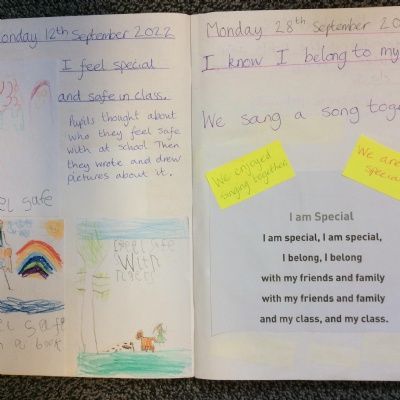 Monday 12th September 2022
I feel special
and safe in class.
Pupils thought about
who they feel safe
with at school. Then
they wrote and drew
pictures about it.
safe
safe
With
Monday 28th September 20
I know I belong to my
We sang a song toge
We enjoyed
singing together
We are
special
I am Special
I am special, I am special,
I belong, I belong
with my friends and family
with my friends and family
and my class, and my class.